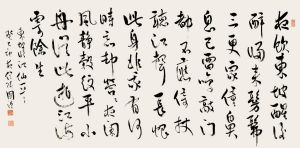 夜飲東坡醒復
醉歸來髣髴
三更家僮鼻
息已雷鳴敲門
都不應倚杖
聽江聲長恨
此身非我有何
時忘却營營夜闌
風靜縠紋平小
舟從此逝江海
寄餘生
東坡臨江仙
癸巳初